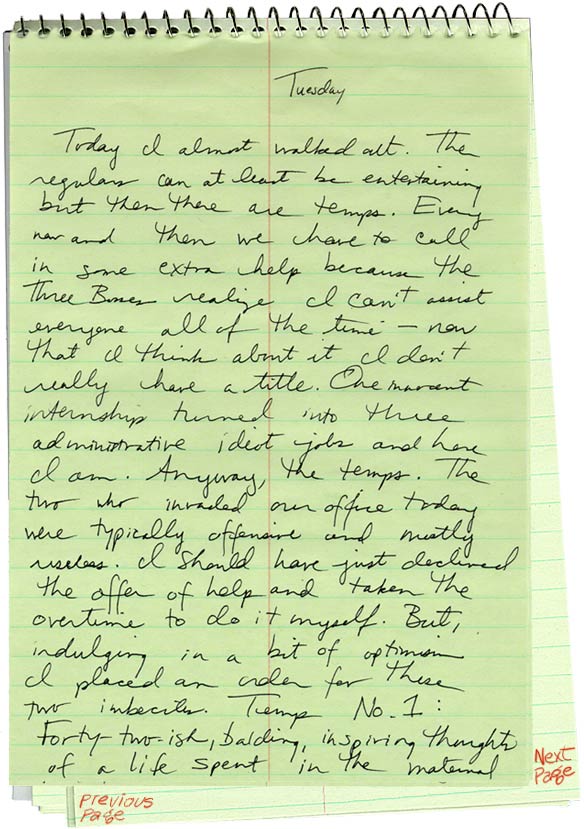 Tuesday
Today I almost walked out. The
regulars can at least be entertaining
but then there are temps. Every
now and then we have to call
in some extra help because the
Three Bosses realize I can't assist
everyone all of the time – now
that I think about it I don't
really have a title. One innocent
internship turned into three
administrative idiot jobs and here
I am. Anyway, the temps. The
two who invaded our office today
were typically offensive and mostly
useless. I should have just declined
the offer of help and taken the
overtime to do it myself. But,
indulging in a bit of optimism
I placed an order for these
two imbeciles. Temp No. 1:
Forty-two-ish, balding, inspiring thoughts
of a life spent in the maternal
Next
Page
Previous
Page